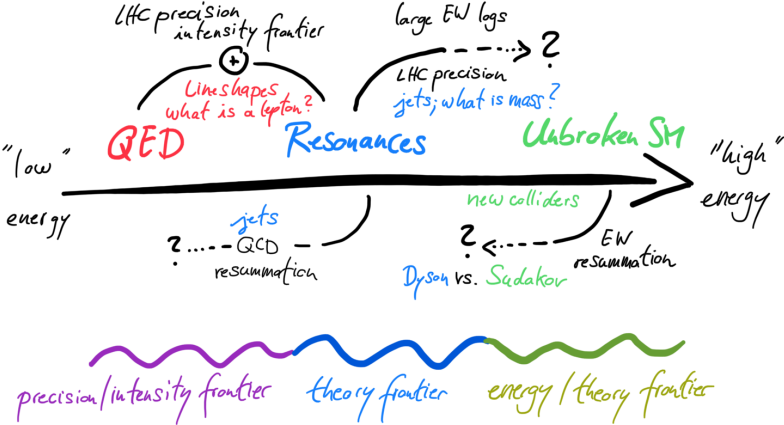 LHC precision
intensity frontier
+
Lineshapes
what is a lepton?
large EW logs
?
LHC precision
jets; what is mass?
QED
Resonances
Unbroken SM
"low"
energy
"high"
energy
jets
? QCD
resummation
new colliders
?
EW
resummation
Dyson vs. Sudakov
precision/intensity frontier
theory frontier
energy/theory frontier